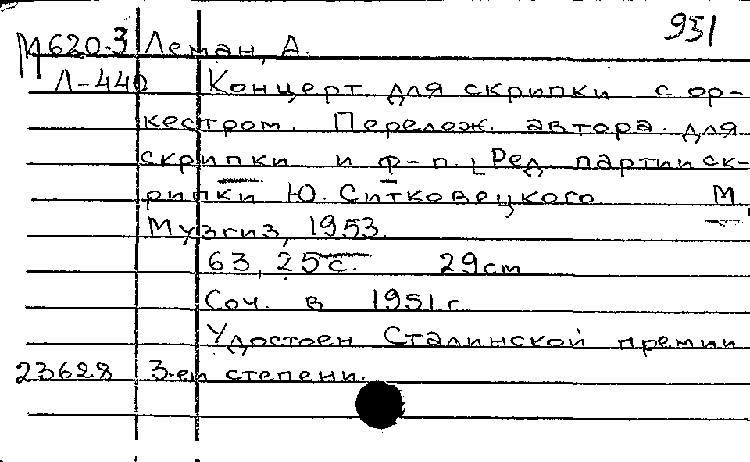 951
М620.3 Леман, А.
Л-440 Концерт для скрипки с ор-
кестром. Перелож. автора для
скрипки и ф-п. Ред. партии ск-
рипки Ю. Ситковецкого М.,
Музгиз, 1953.
63, 25 с. 29 cm
Соч. в 1951 г.
Удостоен Сталинской премии
23628 3-ей степени.